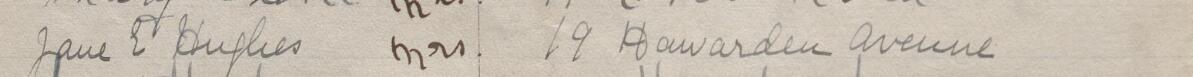 Jane E Hughes Mrs. 19 Hawarden Avenue